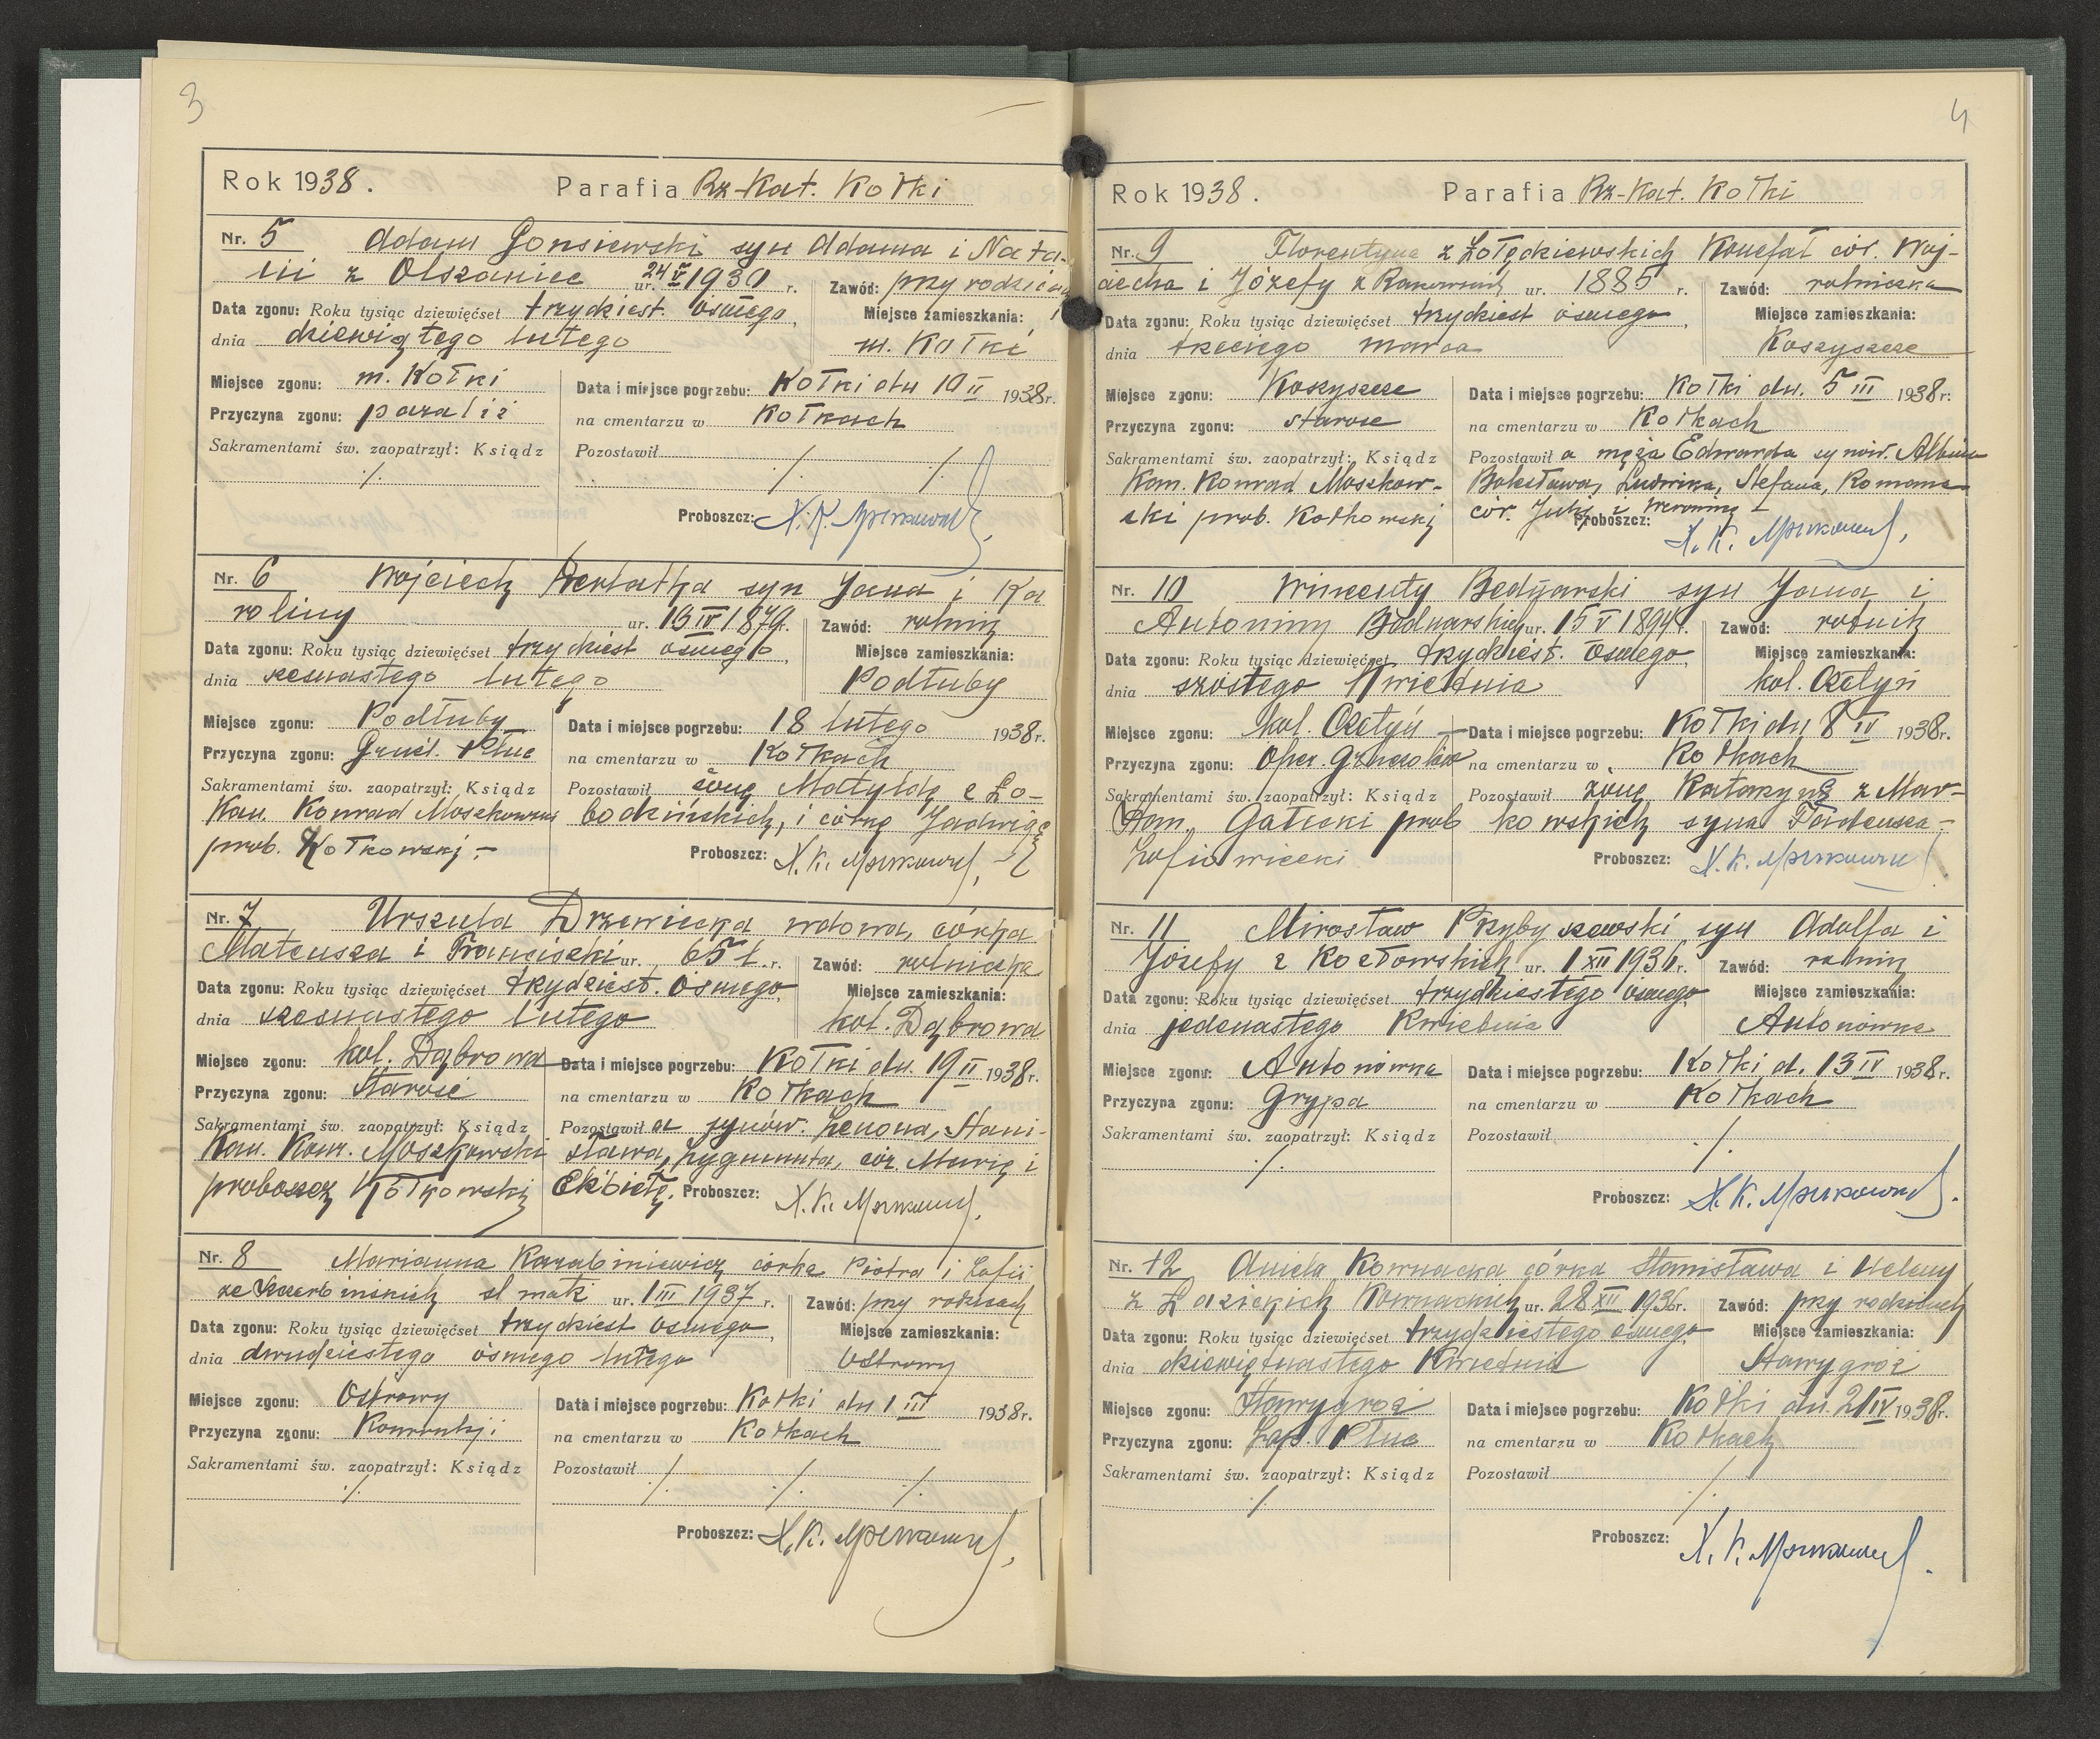 3
Rok 1938. Parafia Rz-Kat. Kołki
Nr. 5 Adam Gonsiewski syn Adama i Nata-
lii z Olszaniec ur. 24 V 1930 r. Zawód: przy rodzicach
Data zgonu: Roku tysiąc dziewięćset trzydziest. ósmego,
Miejsce zamieszkania:
dnia dziewiątego lutego m. Kołki
Miejsce zgonu: m. Kołki Data i miejsce pogrzebu: Kołki dn 10 II 1938r.
Przyczyna zgonu: paraliż na cmentarzu w Kołkach
Sakramentami św. zaopatrzył: Ksiądz Pozostawił
./. ./. ./.
Proboszcz: X. K.
Nr. 6 Wojciech syn Jana i Ka
roliny ur. 13 IV 1879r. Zawód: rolnik
Data zgonu: Roku tysiąc dziewięćset trzydziest ósmego,
Miejsce zamieszkania:
dnia szesnastego lutego Podłuby
Miejsce zgonu: Podłuby Data i miejsce pogrzebu: 18 lutego 1938r.
Przyczyna zgonu: Gruźl. Płuc na cmentarzu w Kołkach
Sakramentami św. zaopatrzył: Ksiądz Pozostawił żonę Matyldę z Ło-
Kan. Konrad Moszkowski bodzińskich, i córkę Jadwigę
prob. Kołkowski - Proboszcz: X. K.
Nr. 7 Urszula Drzewiecka wdowa, córka
Mateusza i Franciszki ur. 65 l. r. Zawód: rolniczka
Data zgonu: Roku tysiąc dziewięćset trzydziest. ósmego,
Miejsce zamieszkania:
dnia szesnastego lutego kol. Dąbrowa
Miejsce zgonu: kol. Dąbrowa Data i miejsce pogrzebu: Kołki dn. 19 II 1938r.
Przyczyna zgonu: Starość na cmentarzu w Kołkach
Sakramentami św. zaopatrzył: Ksiądz Pozostawił a synów. Zenona, Stani-
Kan. Konr. Moszkowski sława, Zygmunta, cór. Marię i
proboszcz Kołkowski Elżbietę. Proboszcz: X. K.
Nr. 8 Marianna Karabiniewicz córka Piotra i Zofii
ur. 1 III 1937 r. Zawód: przy rodzicach
Data zgonu: Roku tysiąc dziewięćset trzydziest ósmego,
Miejsce zamieszkania:
dnia dwudziestego ósmego lutego Ostrowy
Miejsce zgonu: Ostrowy Data i miejsce pogrzebu: Kołki dn 1 III 1938r.
Przyczyna zgonu: na cmentarzu w Kołkach
Sakramentami św. zaopatrzył: Ksiądz Pozostawił ./. ./. ./.
./.
Proboszcz: X. K.
4
Rok 1938. Parafia Rz-Kat. Kołki
Nr. 9 Florentyna z Żołędkiewskich Konefał cór. Woj-
ciecha i Józefy z ur. 1885 r. Zawód: rolniczka
Data zgonu: Roku tysiąc dziewięćset trzydziest ósmego,
Miejsce zamieszkania:
dnia trzeciego marca Koszyszcze
Miejsce zgonu: Koszyszcze Data i miejsce pogrzebu: Kołki dn. 5 III 1938r.
Przyczyna zgonu: starość na cmentarzu w Kołkach
Sakramentami św. zaopatrzył: Ksiądz Pozostawił a męża Edwarda synów. Albina
Kan. Konrad Moszkow- Bolesława, Ludwika, Stefana, Romana
ski prob. Kołkowski cór. Julię i Weronikę
Proboszcz: X. K.
Nr. 10 Wincenty Bednarski syn Jana i
Antoniny Bednarskich ur. 15 V 1894r. Zawód: rolnik
Data zgonu: Roku tysiąc dziewięćset trzydziest. ósmego,
Miejsce zamieszkania:
dnia szóstego Kwietnia kol. Czetyń
Miejsce zgonu: kol. Czetyń - Data i miejsce pogrzebu: Kołki dn 8 IV 1938r.
Przyczyna zgonu: Oper. na cmentarzu w Kołkach
Sakramentami św. zaopatrzył: Ksiądz Pozostawił żonę Katarzynę z Mar-
Gałecki prob kowskich syna Tadeusza -
Zofiowiecki Proboszcz: X. K.
Nr. 11 Mirosław Przybyszewski syn Adolfa i
Józefy z Kozłowskich ur. 1 XII 1936r. Zawód: rolnik
Data zgonu: Roku tysiąc dziewięćset trzydziestego ósmego
Miejsce zamieszkania:
dnia jedenastego Kwietnia Antonówka
Miejsce zgonu: Antonówka Data i miejsce pogrzebu: Kołki d. 13 IV 1938r.
Przyczyna zgonu: Grypa na cmentarzu w Kołkach
Sakramentami św. zaopatrzył: Ksiądz Pozostawił
./. ./.
Proboszcz: X. K.
Nr. 12 Aniela Kownacka córka Stanisława i Heleny
z Łozickich Kownackich ur. 28 XII 1936r. Zawód: przy rodzicach
Data zgonu: Roku tysiąc dziewięćset trzydziestego ósmego
Miejsce zamieszkania:
dnia dziewiętnastego Kwietnia Starygroź
Miejsce zgonu: Starygroź Data i miejsce pogrzebu: Kołki dn. 21 IV 1938r.
Przyczyna zgonu: Zap. Płuc na cmentarzu w Kołkach
Sakramentami św. zaopatrzył: Ksiądz Pozostawił
./. ./.
Proboszcz: X. K.